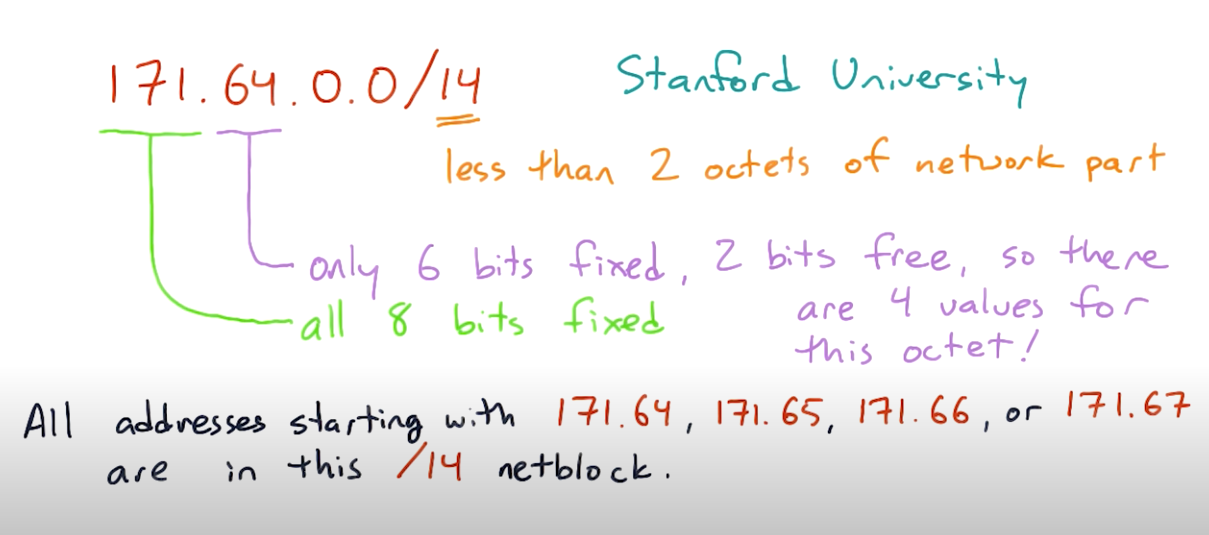 171.64.0.0/14
Stanford University
less than 2 octets of network part
only 6 bits fixed, 2 bits free, so there
are 4 values for
this octet!
all 8 bits fixed
All addresses starting with 171.64, 171.65, 171.66, or 171.67
are in this /14 netblock.